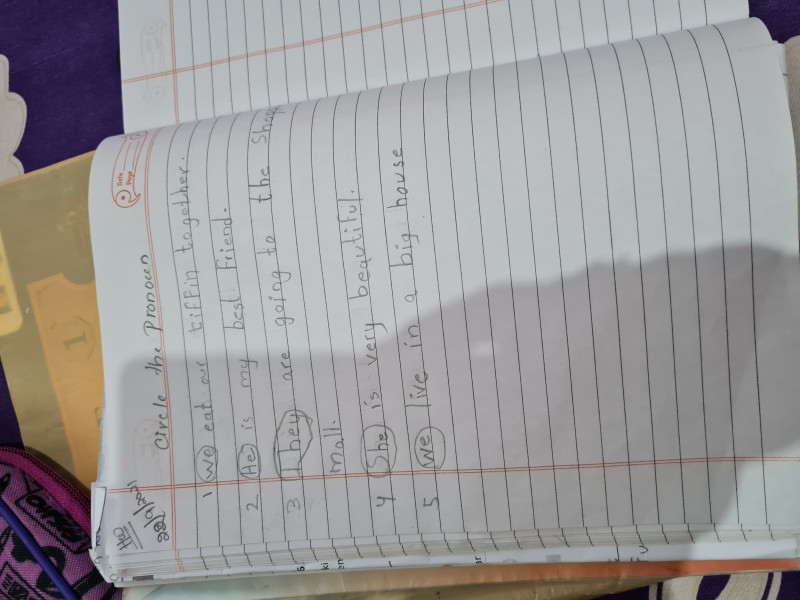 HW
Circle the Pronoun
Date
Page
1 We eat our tiffin together.
2 He is my best friend.
3 They are going to the Shop
mall.
4 She is very beautiful.
5 We live in a big house